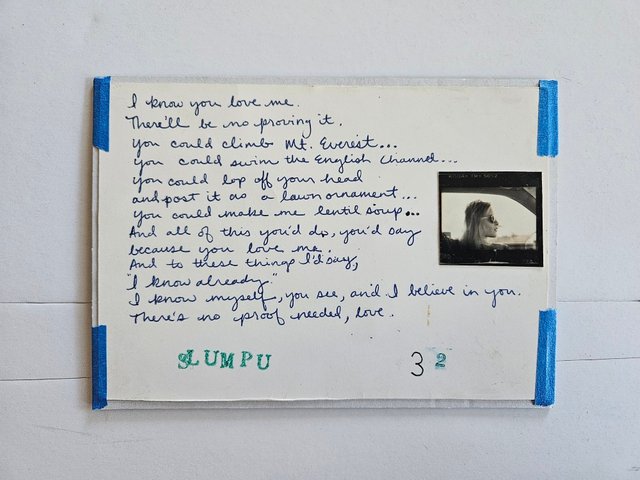 I know you love me.
There'll be no proving it.
You could climb Mt. Everest...
You could swim the English Channel...
You could lop off your head
and post it as a lawn ornament...
You could make me lentil soup...
And all of this you'd do, you'd say
because you love me.
And to these things I'd say,
"I know already."
I know myself, you see, and I believe in you.
There's no proof needed, love.
SLUMPU
32